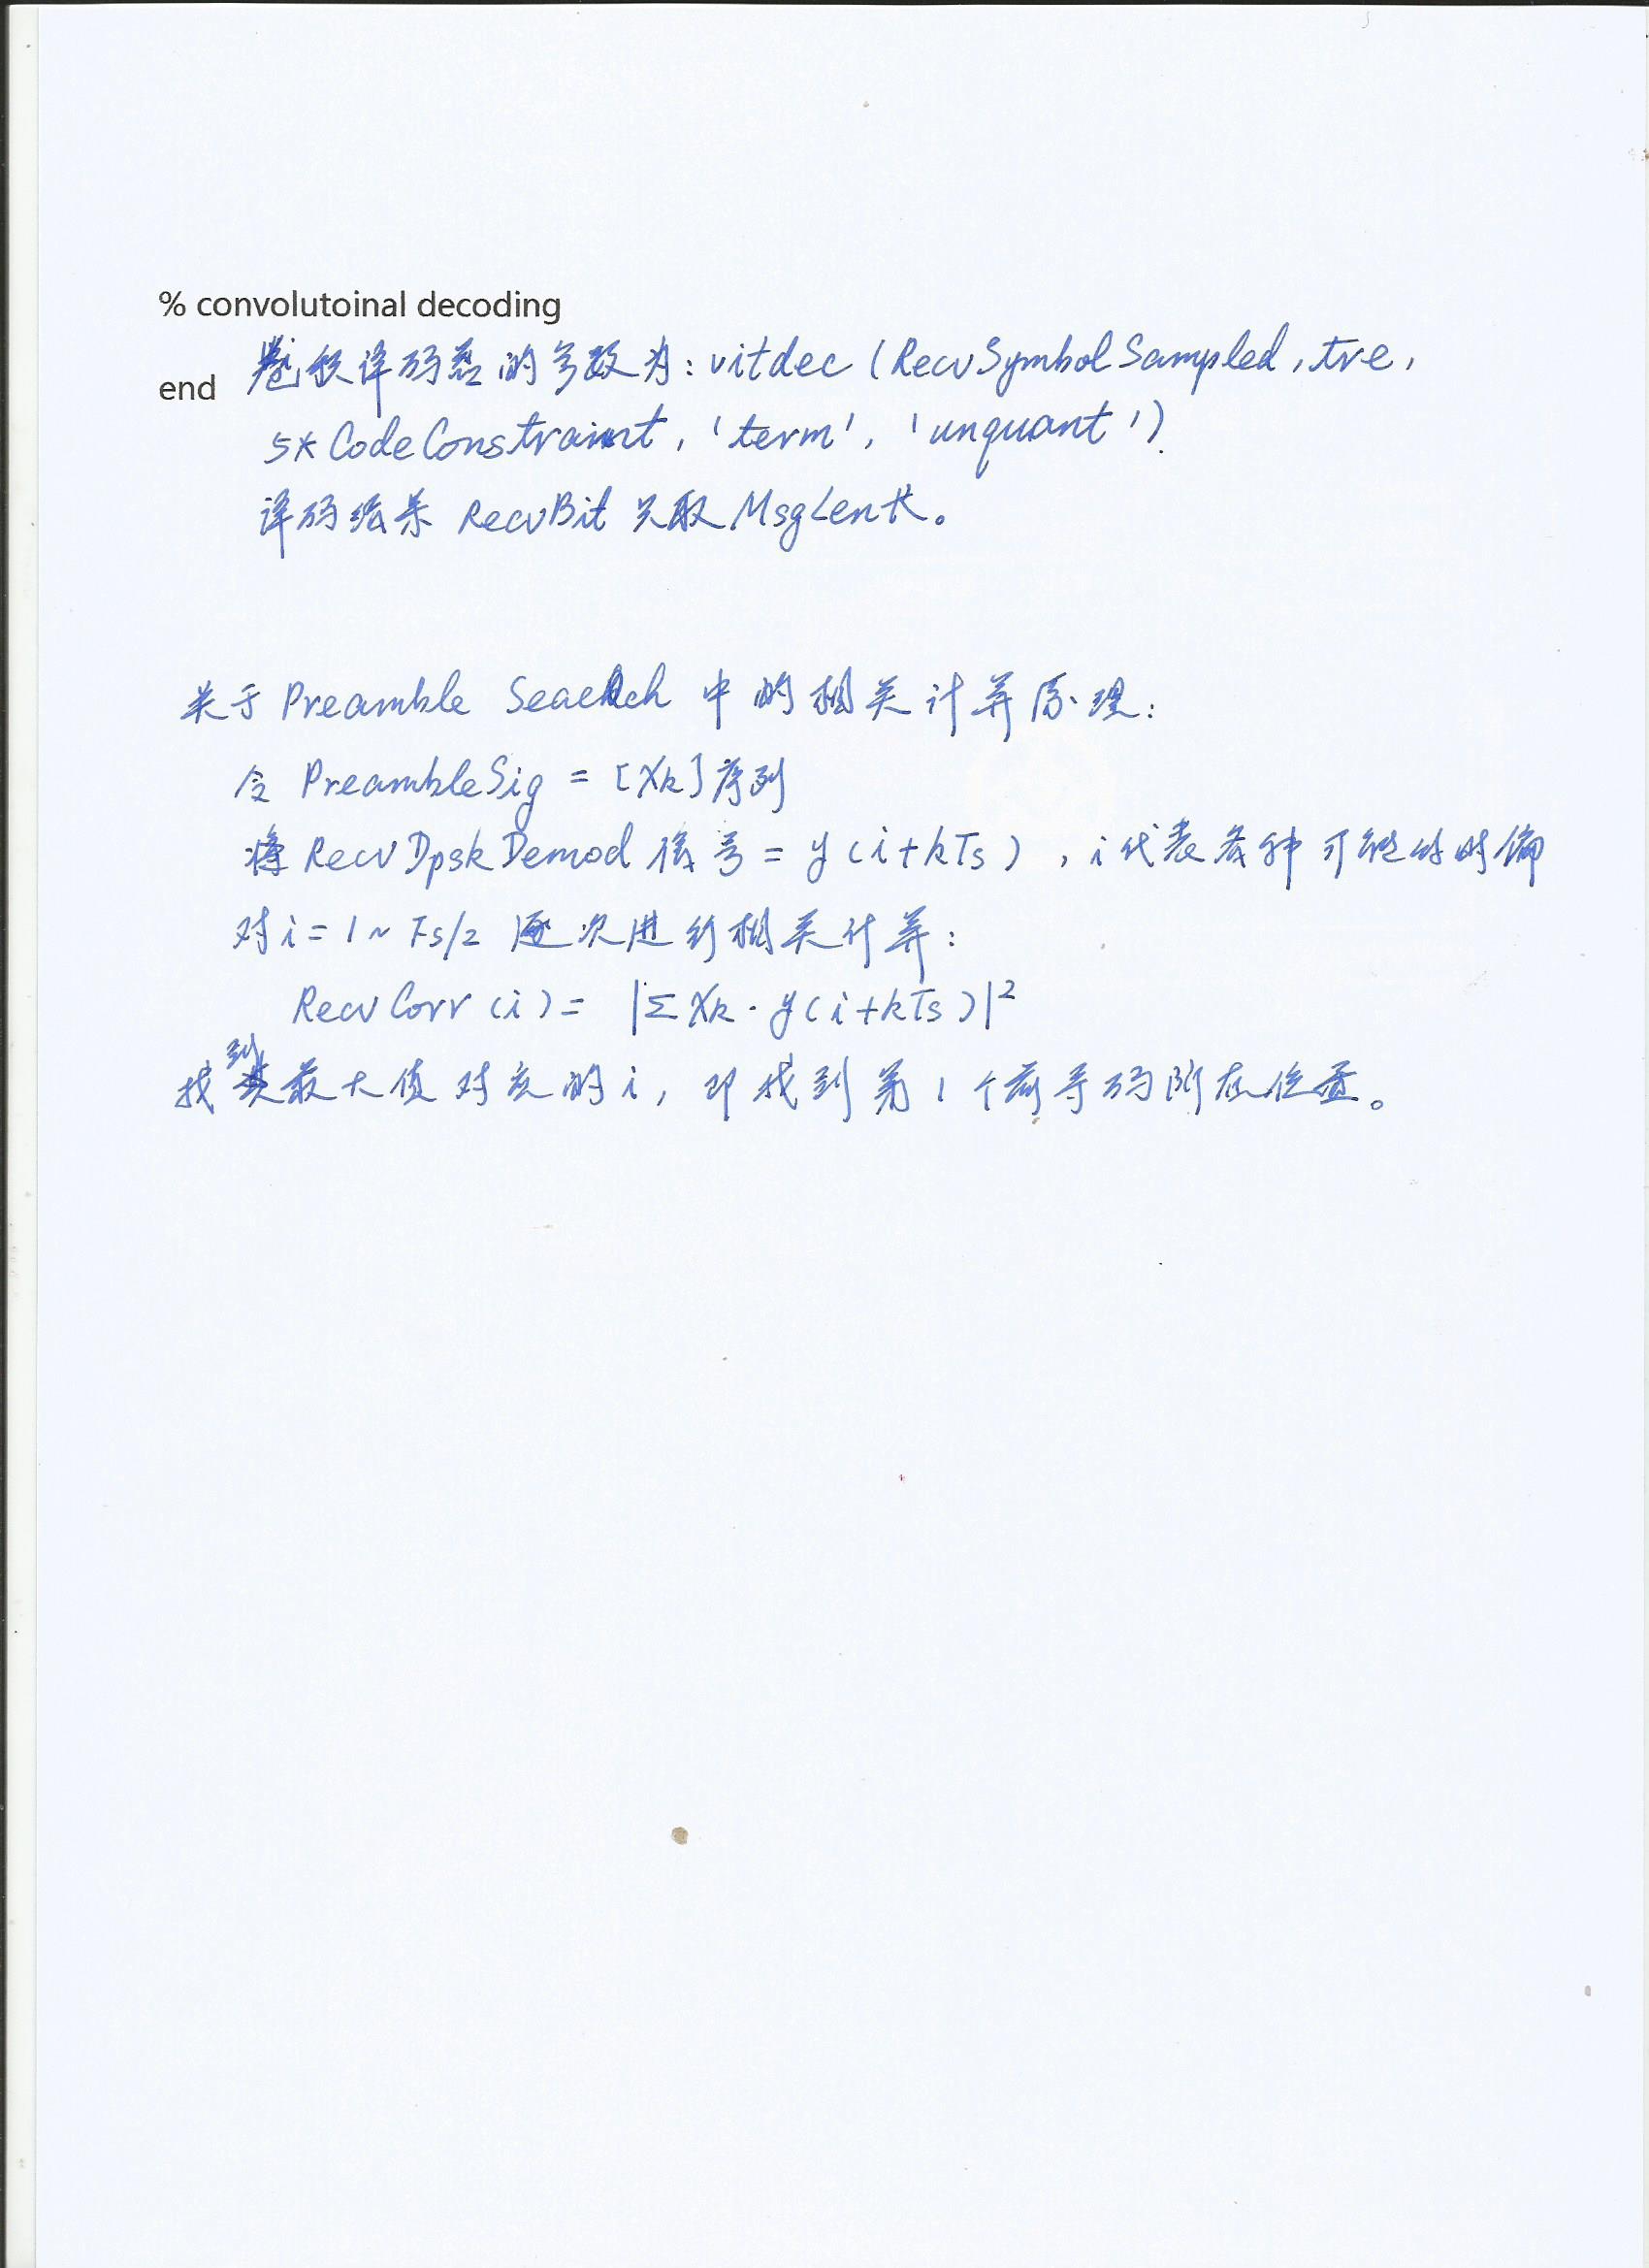 % convolutoinal decoding
end 卷积译码器的参数为：vitdec (RecvSymbolSampled, tre,
5*CodeConstraint, 'term', 'unquant')
译码结果 RecvBit 只取 MsgLen长。
关于 Preamble Search 中的相关计算原理：
令 PreambleSig = [Xk]序列
将 RecvDpskDemod 信号 = y(i+kTs), i代表各种可能的时偏
对 i = 1 ~ Fs/2 逐次进行相关计算：
RecvCorr (i) = |Σ Xk · y(i+kTs)|²
找到最大值对应的 i, 即找到第1个前导码所在位置。